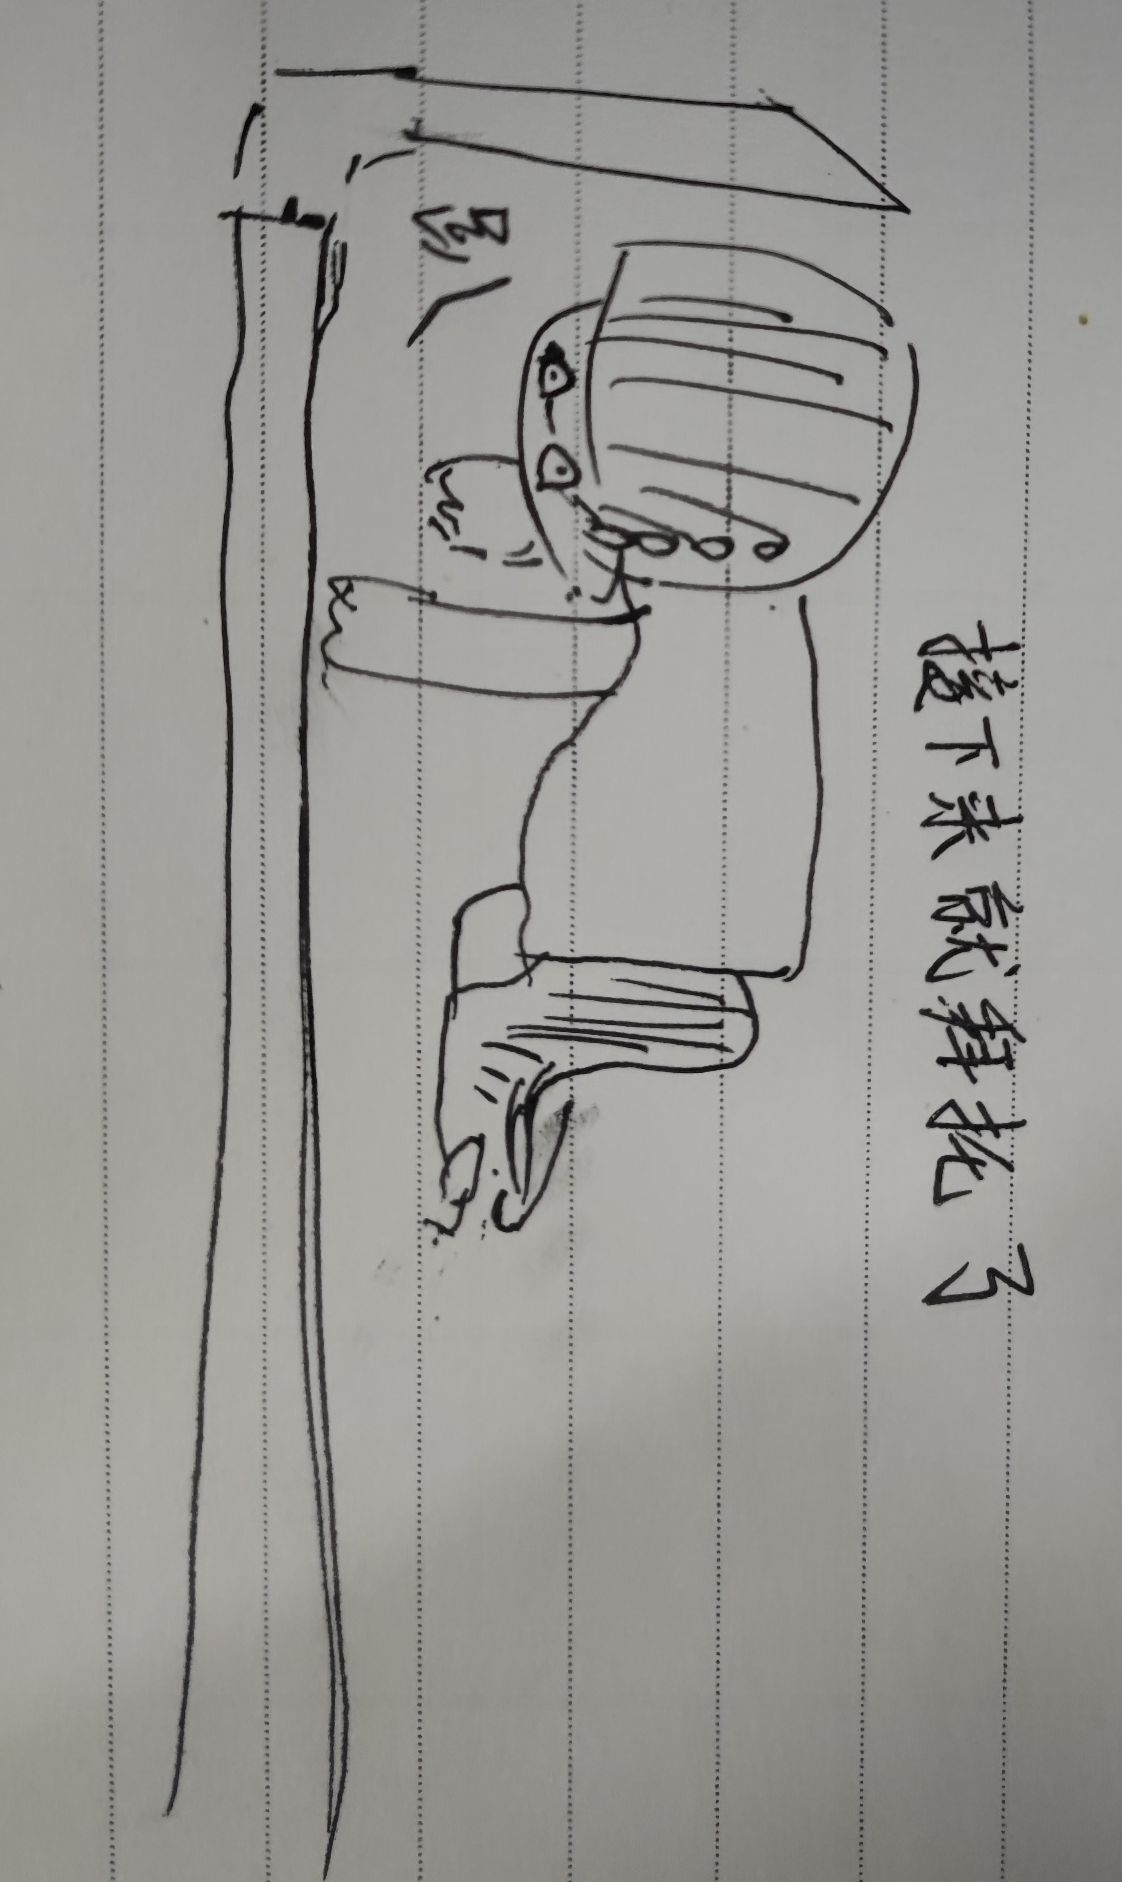 接下来就拜托了